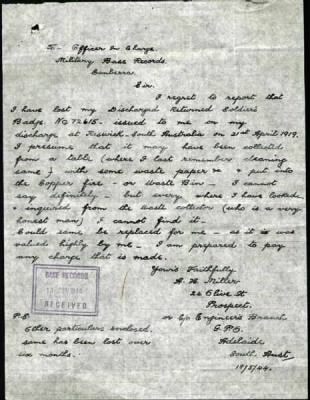 To - Officer In Charge.
Military Base Records.
Canberra.
Sir.
I regret to report that
I have lost my Discharged Returned Soldier's
Badge. No 72615 - issued to me on my
discharge at Keswick, South Australia on 21st April 1919.
I presume that it may have been collected
from a table (where I last remember cleaning
same) with some waste paper & put into
the Copper fire - or Waste Bin - I cannot
say definitely - but every where I have looked
& inquired from the waste collector (who is a very
honest man) I cannot find it -
Could same be replaced for me - as it is was
valued highly by me - I am prepared to pay
any charge that is made.
Yours Faithfully
A. H. Miller
26 Olive St
Prospect.
BASE RECORDS
RECEIVED
P.S.
Other particulars enclosed.
same has been lost over
six months.
or C/o Engineer's Branch
G.P.O.
Adelaide
South Aust
19/5/44.